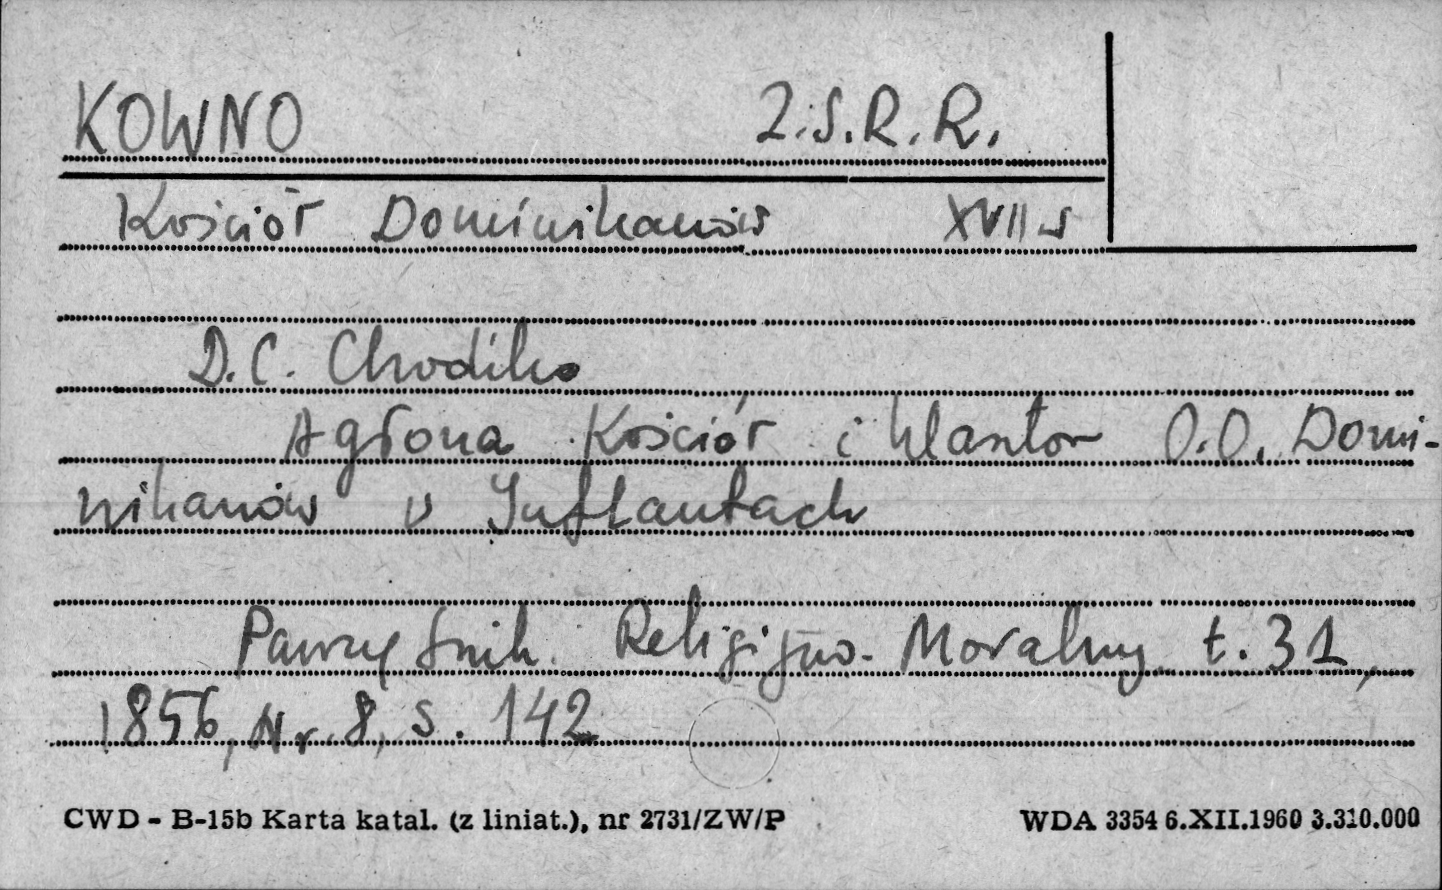 KOWNO Z.S.R.R.
Kościół Dominikanów XVII w
D.C. Chodźko
Agłona Kościół i klasztor O.O. Domi-
nikanów w Inflantach
Pamiętnik Religijno-Moralny t. 31,
1856, Nr. 8, s. 142
CWD - B-15b Karta katal. (z liniat.), nr 2731/ZW/P WDA 3354 6.XII.1960 3.310.000